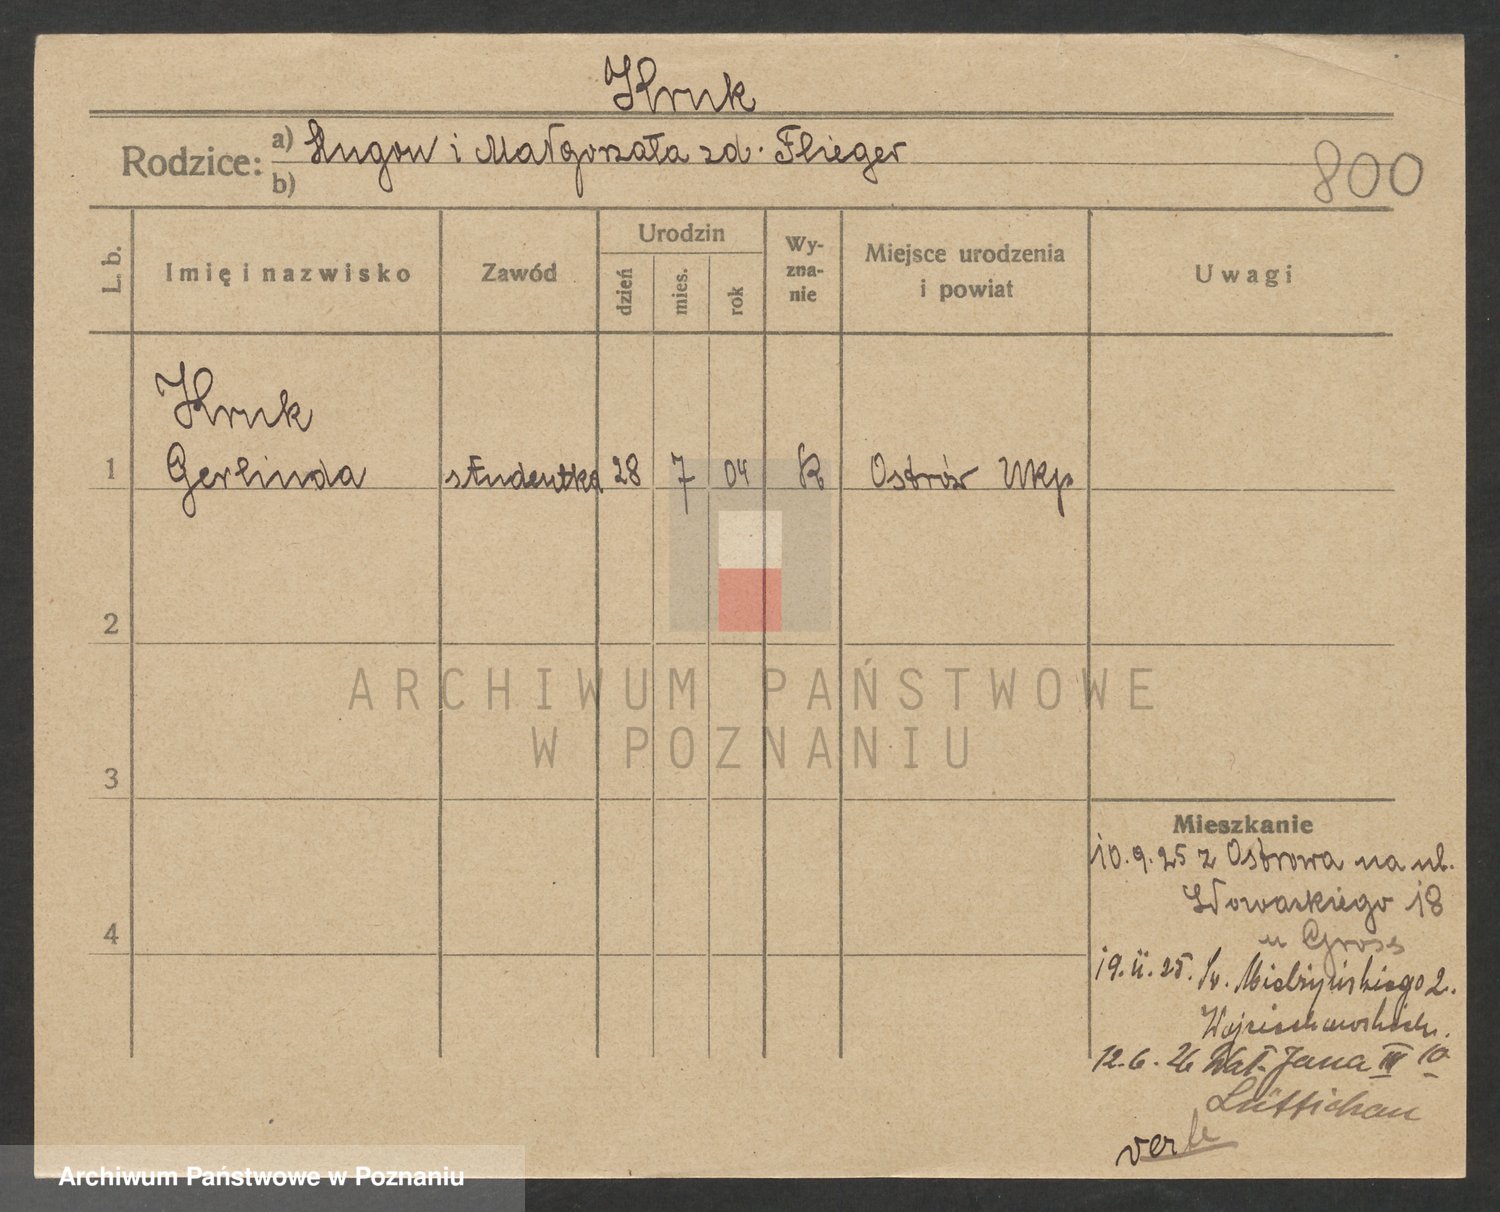 Kruk
Rodzice: a) Hugon i Małgorzata zd. Flieger
b)
800
L. b.
Imię i nazwisko
Zawód
Urodzin
dzień
mies.
rok
Wy-
zna-
nie
Miejsce urodzenia
i powiat
Uwagi
Kruk
1 Gerlinda studentka 28 7 04 R Ostrów Wkp
2
3
4
ARCHIWUM PAŃSTWOWE
W POZNANIU
Mieszkanie
10.9.25 z Ostrowa na ul.
Słowackiego 18
u Gross
19.11.25. 2.
12.6.26 Wał. Jana III 10
Lüttichau
Archiwum Państwowe w Poznaniu